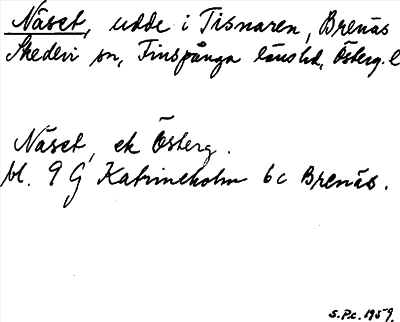 Näset, udde i Tisnaren, Brenäs
Skedevi sn, Finspånga länsbd, Österg. l
Näset, ek Österg.
bl. 9 G Katrineholm 6c Brenäs.
S.P.c. 1959.